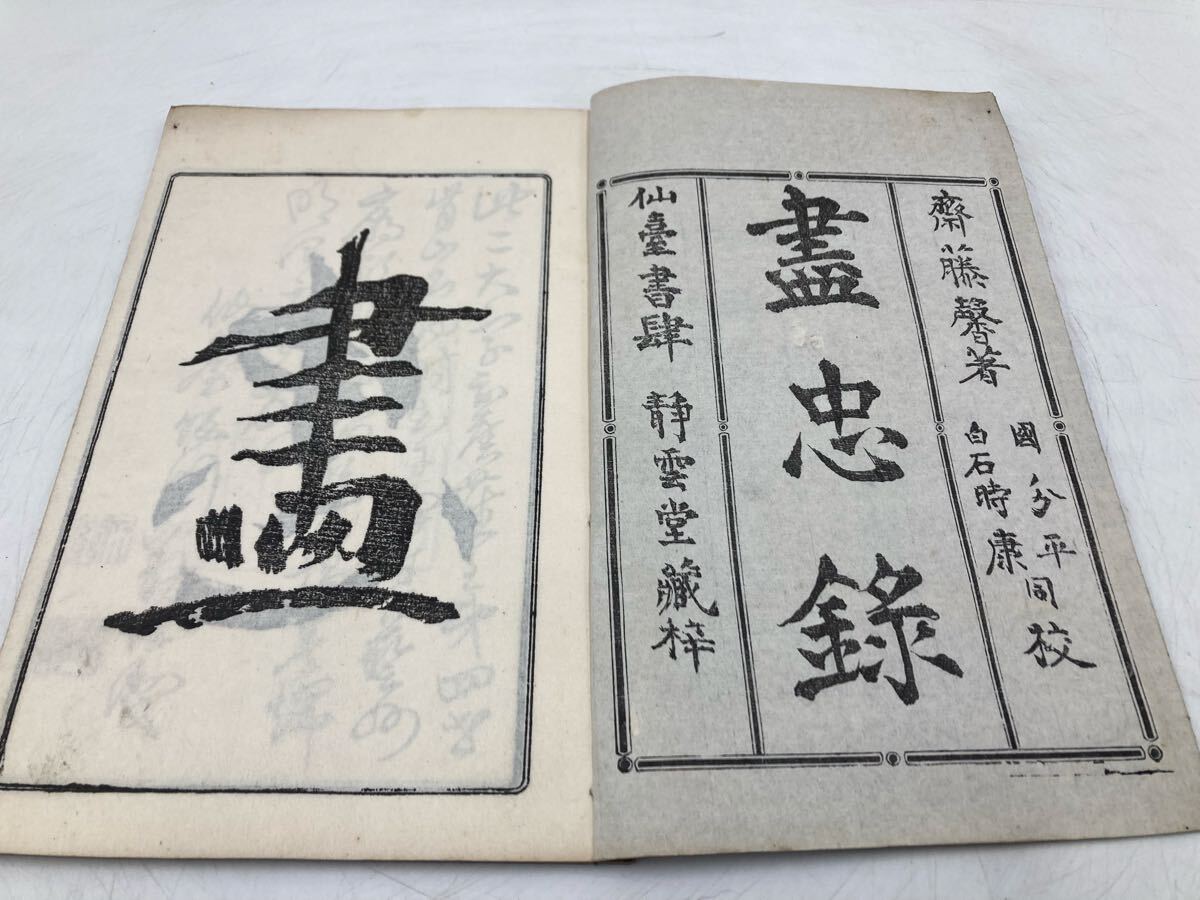 齋藤馨著
國分平同校
白石時康
盡忠錄
仙臺書肆 靜雲堂藏梓
盡